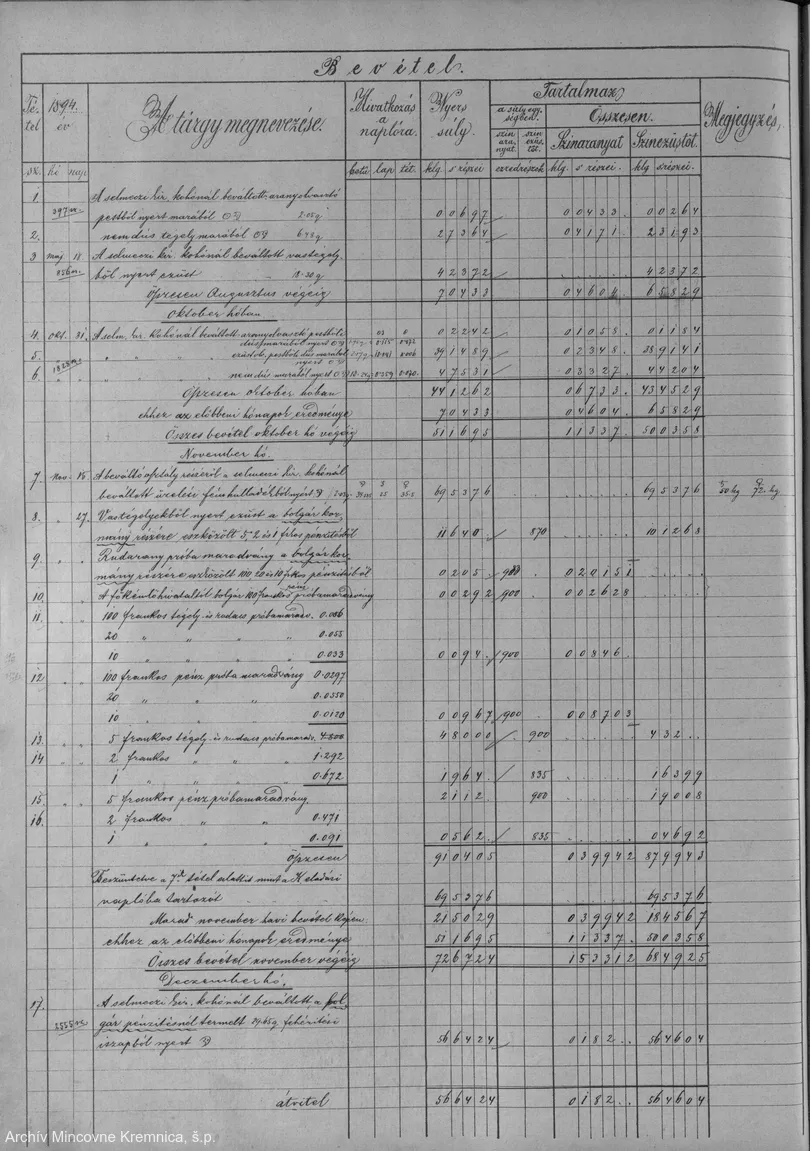 Bevétel.
Tétel sz. 1894. év hó nap A tárgy megnevezése. Hivatkozás a naplóra. betü lap tét. Nyers súly. klg s részei Tartalmaz a súlyegységben. szinaranyat. szinezüstöt. ezredrészek Összesen. Szinaranyat klg. s részei. Szinezüstöt. klg s részei. Megjegyzés.
1. A selmeczi kir. kohónál beváltott aranyolvasztó
397 sz. postból nyert marából 2.05 g 00697 00433. 00264
2. nem dús tégely marából 6.43 g 27364 04171. 23193
3 maj 18 A selmeczi kir. kohónál beváltott vastégely-
856 sz. ből nyert ezüst 42372 42372
Összesen Augusztus végéig 70433 04604 65829
Oktober hóban
4. okt. 31. A selm. kir. kohónál beváltott aranyolvasztó postból 02242 01058. 01184
dús marából nyert
5. ezüstöt. postból dús marából nyert 391489 02348. 389141
6. 1828 sz. nem dús marából nyert 47531 03327. 44204
Összesen oktober hóban 441262 06733. 434529
ehhez az előbbeni hónapok eredménye 70433 04604. 65829
Összes bevétel oktober hó végéig 511695 11337. 500358
November hó.
7. Nov. 15. A beváltó osztály részéről a selmeczi kir. kohónál
beváltott izelési fémhulladékból nyert 695376 695376 50 kg 72. kg
8. " 27. Vastégelyekből nyert ezüst a bolgár kor-
mány részére eszközölt 5, 2 és 1 frkos pénzitésből 11640. 870 101268
9. Rudarany próba maradvány a bolgár kor-
mány részére eszközölt 100, 20 és 10 frkos pénzitésből 0205. 900 020151
10. A főkémlőhivataltól bolgár 100 frankos pénz próbamaradvány 00292 900 002628
11. 100 frankos tégely és rudacs próbamarad. 0.006
20 " " " 0.055
10 " " " 0.033 0094. 900 00846.
12 100 frankos pénz próba maradvány 0.0297
20 " " 0.0550
10 " " 0.0120 00967 900 008703
13. 5 frankos tégely és rudacs próbamarad. 4.800 48000 900 432..
14 2 frankos " " " 1.292
1 " " " 0.672 1964. 835 16399
15. 5 frankos pénz próbamaradvány 2112 900 19008
16. 2 frankos " " 0.471
1 " " 0.091 0562. 835 04692
Összesen 910405 039942 879943
Beszüntetve a 7ik tétel alattit mint a K eladási
naplóba tartozót 695376 695376
Marad november havi bevétel képen 215029 039942 184567
ehhez az előbbeni hónapok eredménye 511695 11337. 500358
Összes bevétel november végéig 726724 153312 684925
Deczember hó.
17. A selmeczi kir. kohónál beváltott, a bol-
2555 sz. gár pénzitésnél termelt 29.65 g. fehéritési
iszapból nyert 566424 0182.. 564604
átvitel 566424 0182.. 564604
Archív Mincovne Kremnica, š.p.